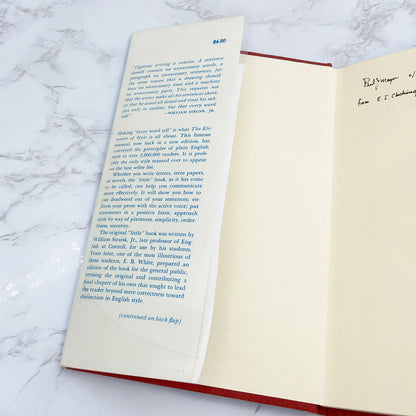 $4.50
"Vigorous writing is concise. A sentence
should contain no unnecessary words, a
paragraph no unnecessary sentences, for
the same reason that a drawing should
have no unnecessary lines and a machine
no unnecessary parts. This requires not
that the writer make all his sentences short,
or that he avoid all detail and treat his sub-
jects only in outline, but that every word
tell."
—WILLIAM STRUNK, JR.
Making "every word tell" is what The Ele-
ments of Style is all about. This famous
manual, now back in a new edition, has
conveyed the principles of plain English
style to over 2,000,000 readers. It is prob-
ably the only style manual ever to appear
on the best seller list.
Whether you write letters, term papers,
or novels, the "little" book, as it has come
to be called, can help you communicate
more effectively. It will show you how to
cut deadwood out of your sentences; en-
liven your prose with the active voice; put
statements in a positive form; approach
style by way of plainness, simplicity, order-
liness, sincerity.
The original "little" book was written by
William Strunk Jr., late professor of Eng-
lish at Cornell, for use by his students.
Years later, one of the most illustrious of
these students, E. B. White, prepared an
edition of the book for the general public,
revising the original and contributing a
final chapter of his own that sought to lead
the reader beyond mere correctness toward
distinction in English style.
(continued on back flap)
from E. I.